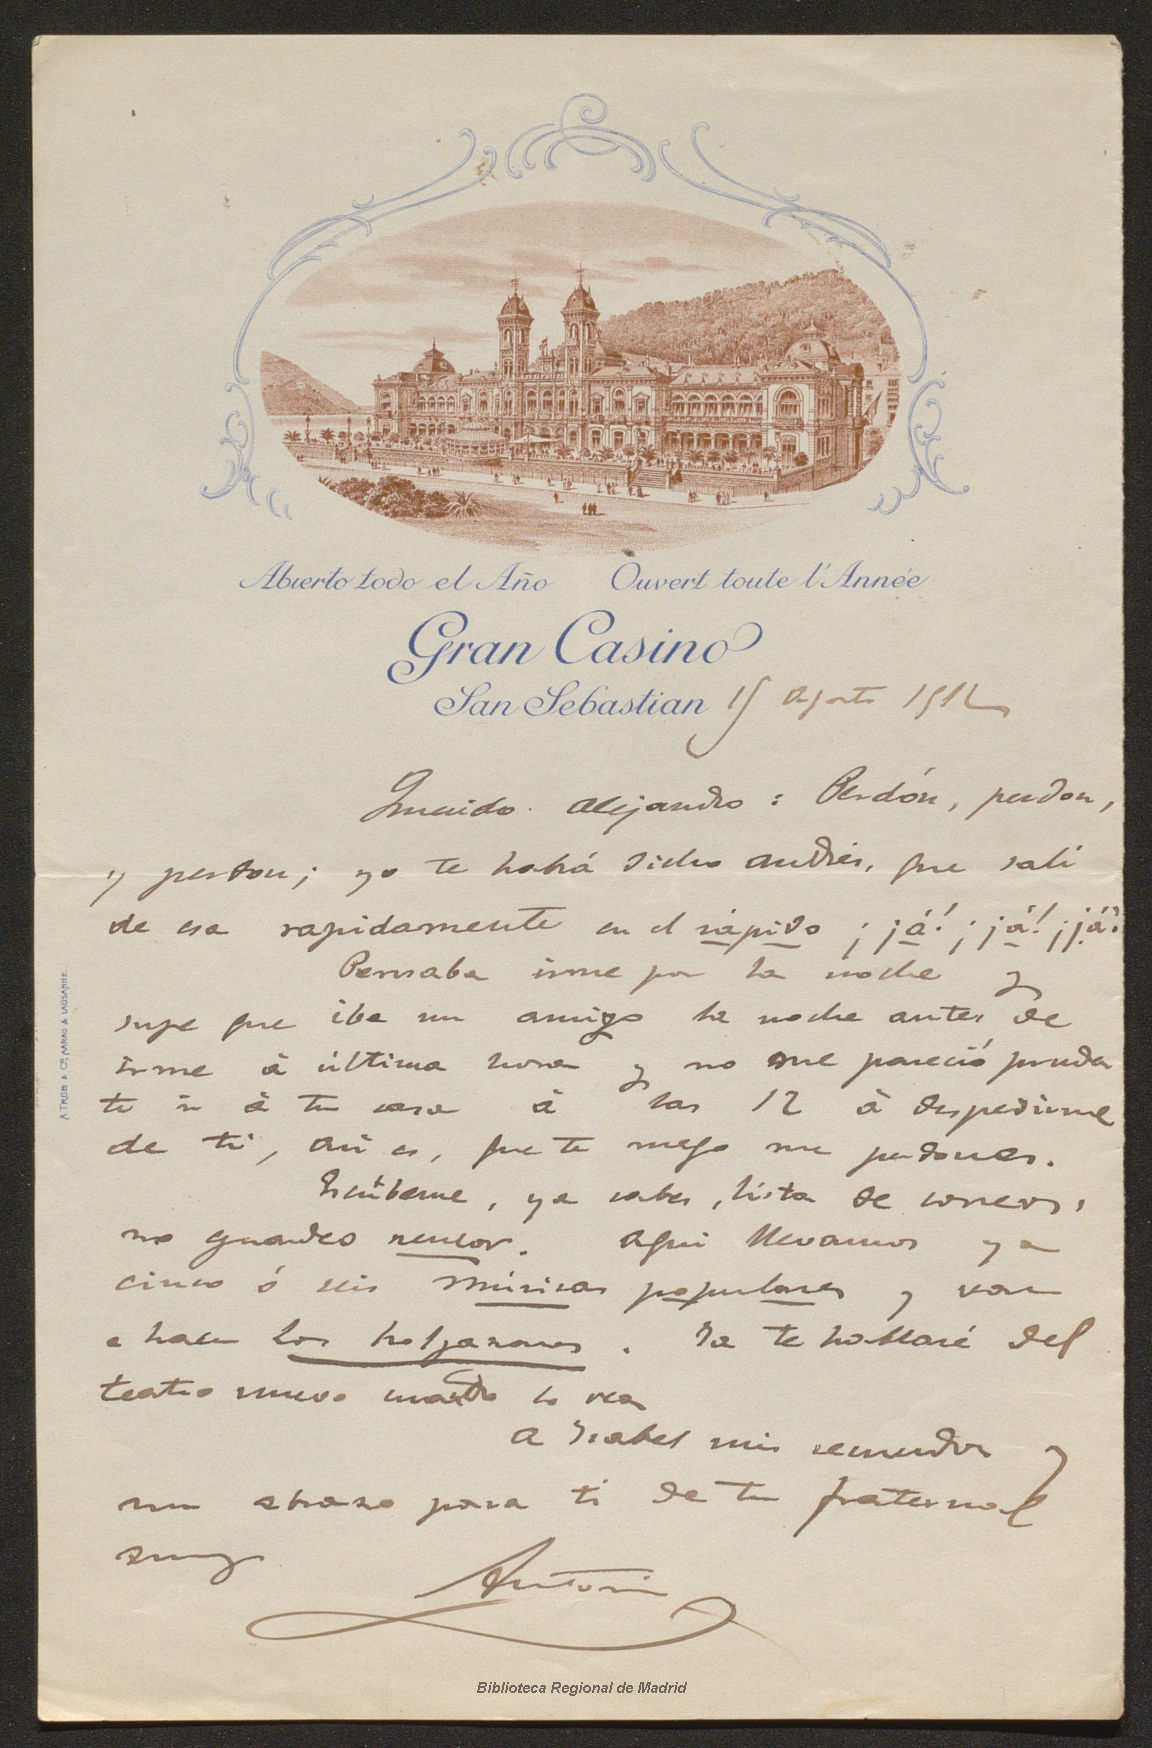 Abierto todo el Año Ouvert toute l'Année
Gran Casino
San Sebastian 15 agosto 1912
Querido Alejandro: Perdón, perdon,
y perdon; yo te habrá dicho Andrés, que salí
de esa rapidamente en el rápido ¡já! ¡já! ¡já!
Pensaba irme por la noche y
supe que iba un amigo la noche antes de
irme á última hora y no me pareció pruden
te ir á tu casa á las 12 á despedirme
de ti, asi es, que te ruego me perdones.
Escribeme, ya sabes, lista de correos,
no guardes rencor. Aqui llevamos ya
cinco ó seis músicas populares y van
a hacer los holgazanes. Ya te hablaré del
teatro nuevo cuando lo vea
A Isabel mis recuerdos y
un abrazo para ti de tu fraternal
Antonio
A. TRÜB & Cº. AARAU & LAUSANNE.
Biblioteca Regional de Madrid